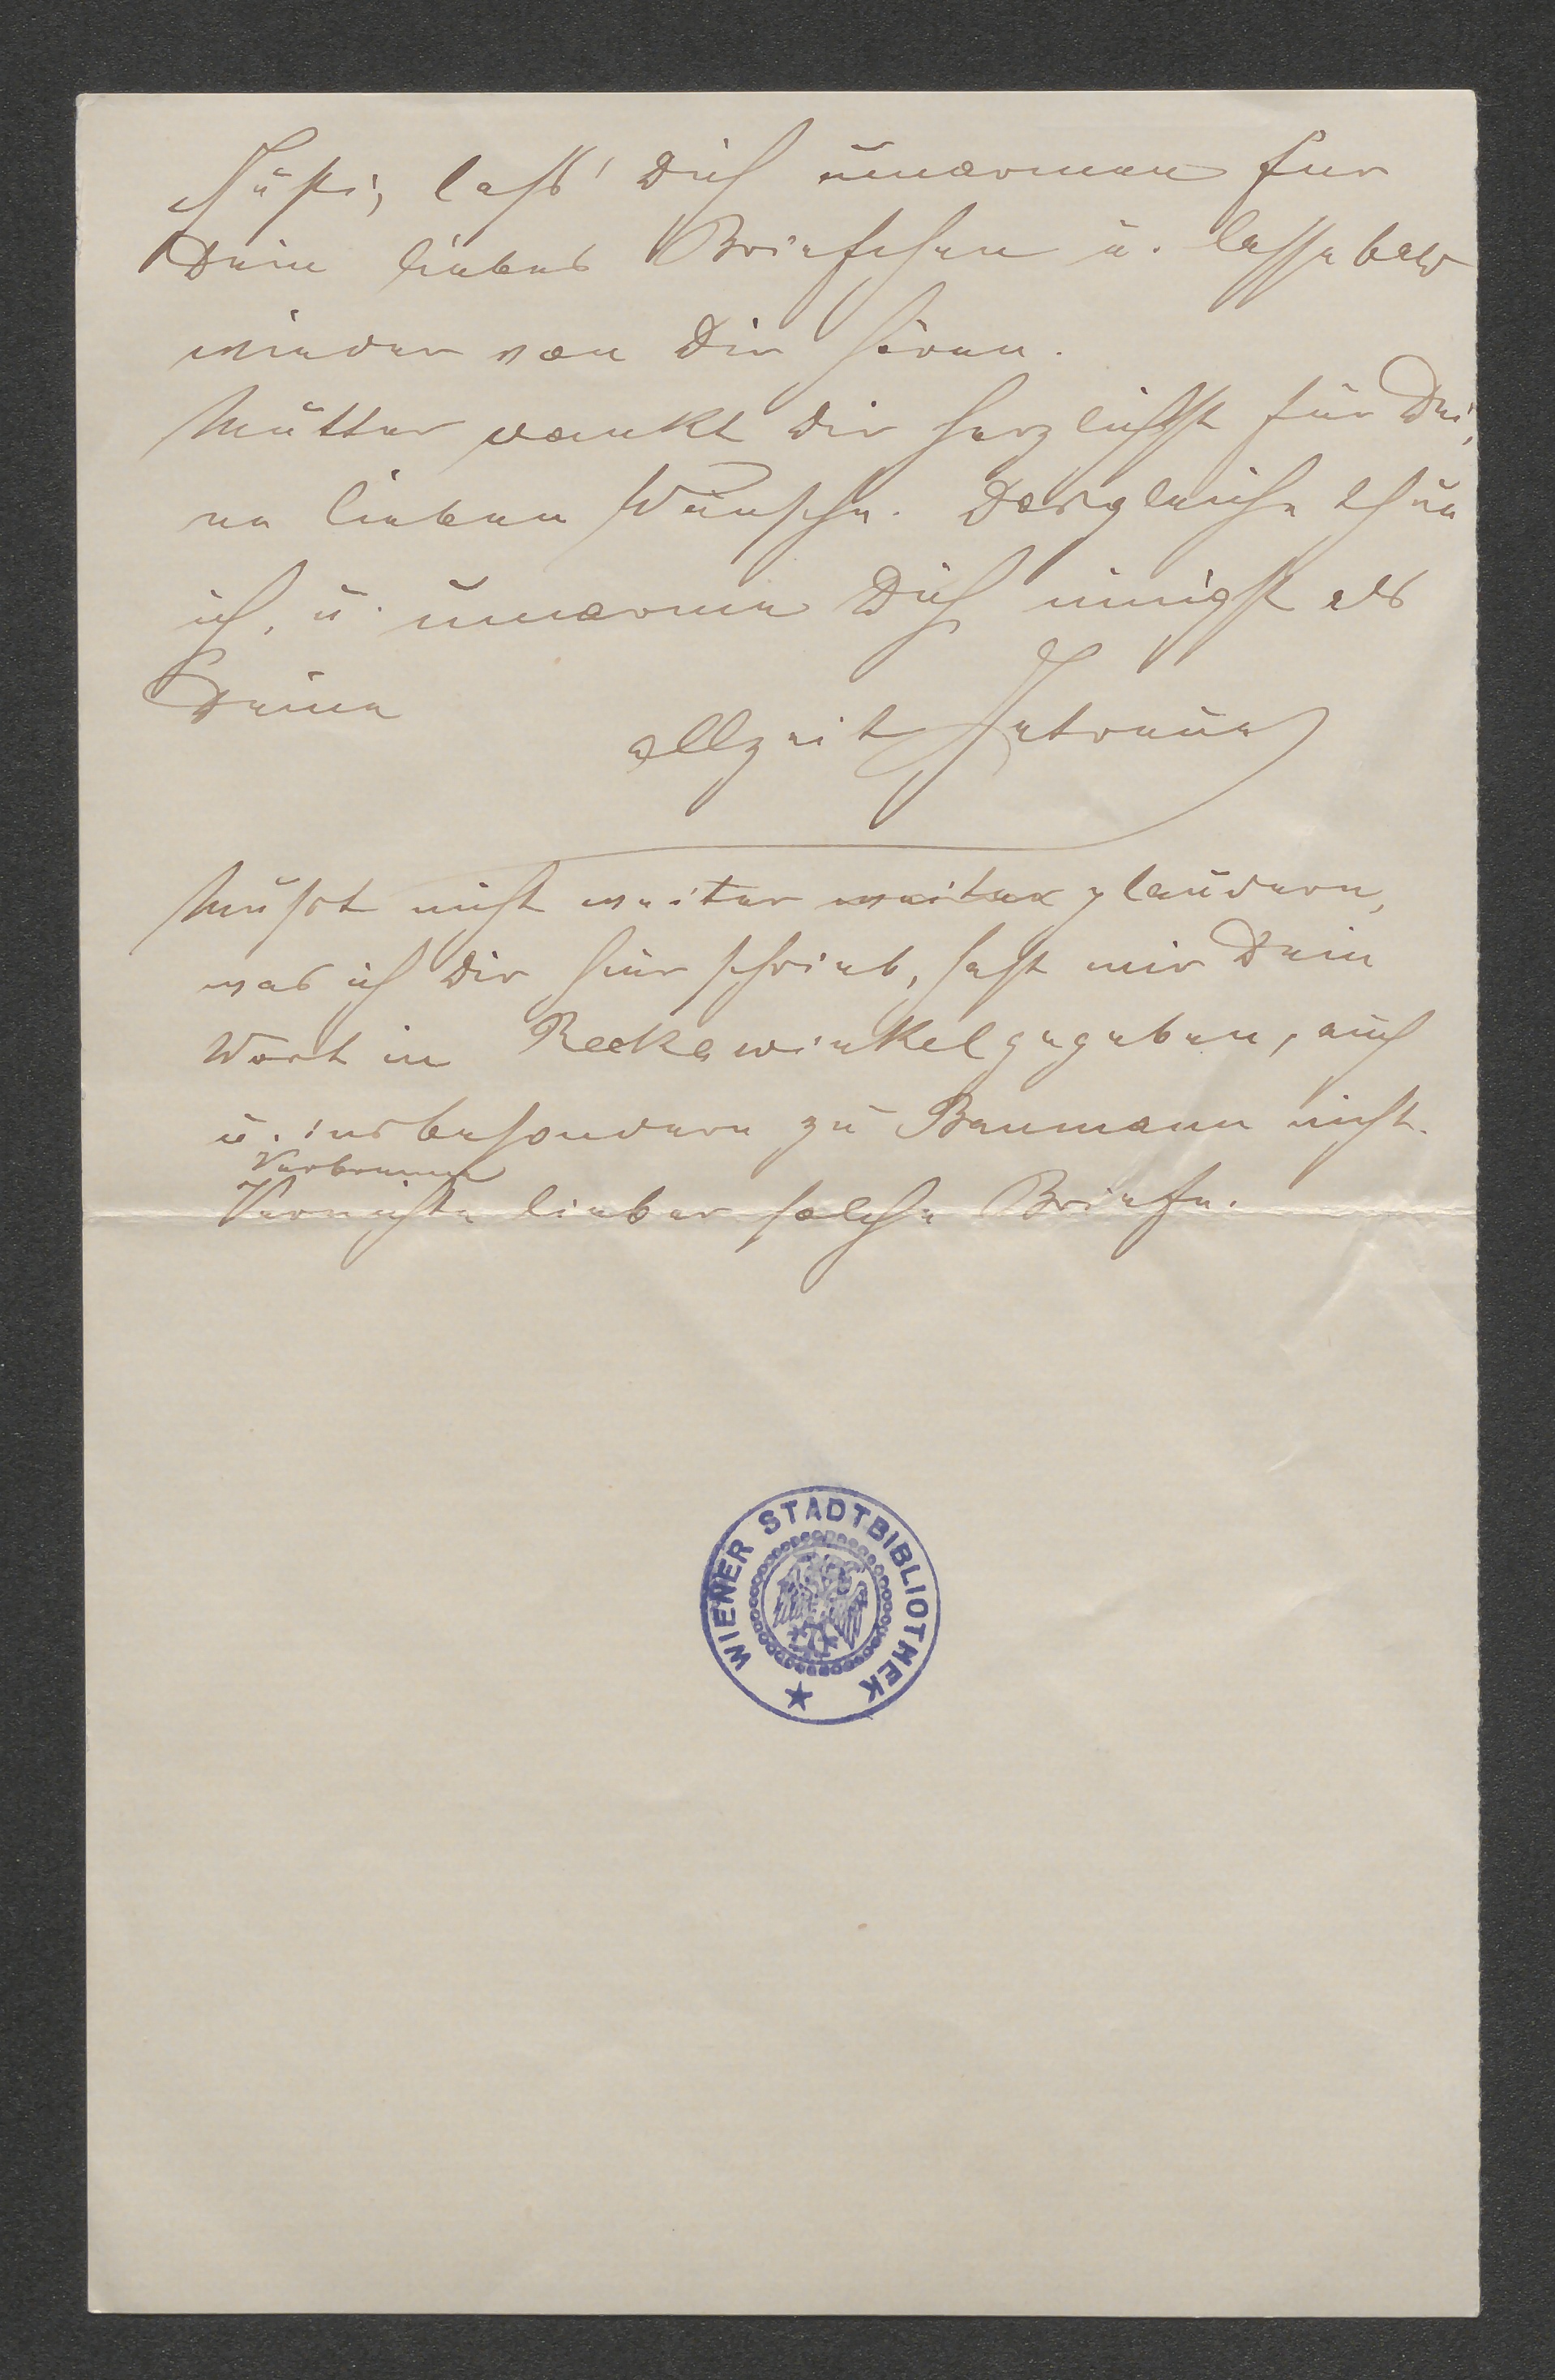 Justi, lass' Dich umarmen für
Dein liebes Briefchen u. lasse bald
wieder von Dir hören.
Mutter dankt Dir herzlichst für Dei-
ne lieben Wünsche. Desgleiche thue
ich, u. umarme Dich innigst als
Deine
allzeit Getreue
Mußt nicht weiter weiter plaudern,
was ich Dir hier schrieb, hast mir Dein
Wort in Rekawinkel gegeben, auch
u. insbesondere zu Baumann nicht.
Verbrenne
Vernichte lieber solche Briefe.
WIENER STADTBIBLIOTHEK